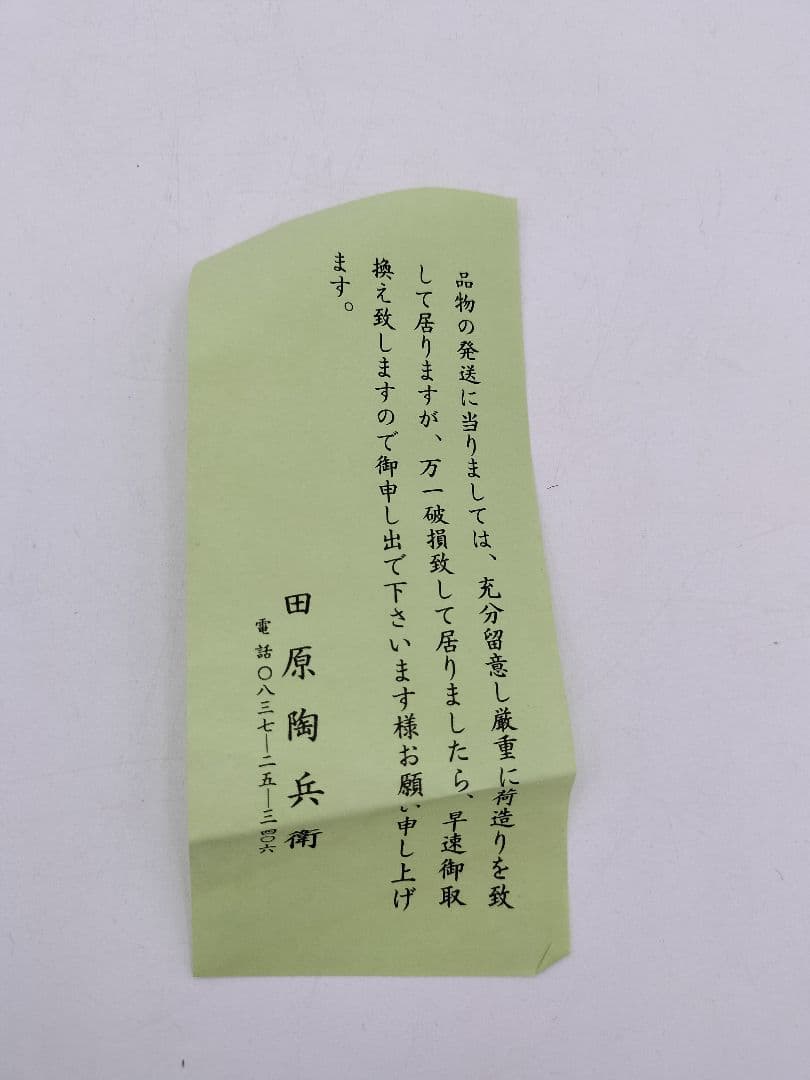 品物の発送に当りましては、充分留意し厳重に荷造りを致
して居りますが、万一破損致して居りましたら、早速御取
換え致しますので御申し出で下さいます様お願い申し上げ
ます。
田原陶兵衛
電話〇八三七―二五―三四〇六